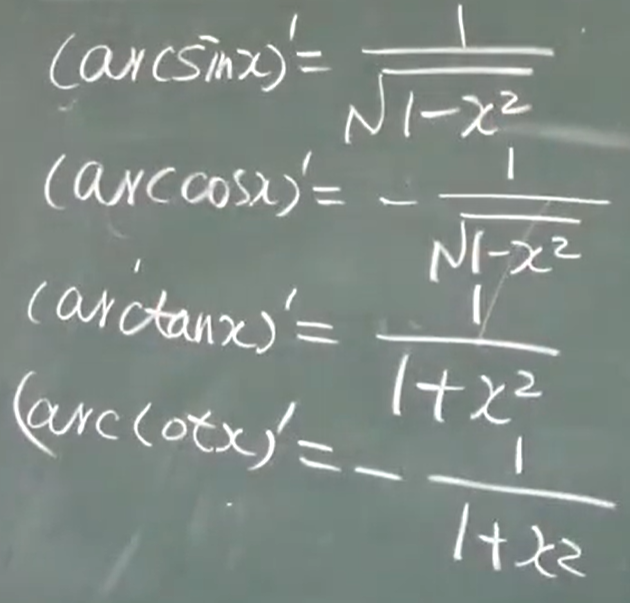 (arcsinx)' = 1/√(1-x²)
(arccosx)' = - 1/√(1-x²)
(arctanx)' = 1/(1+x²)
(arccotx)' = - 1/(1+x²)